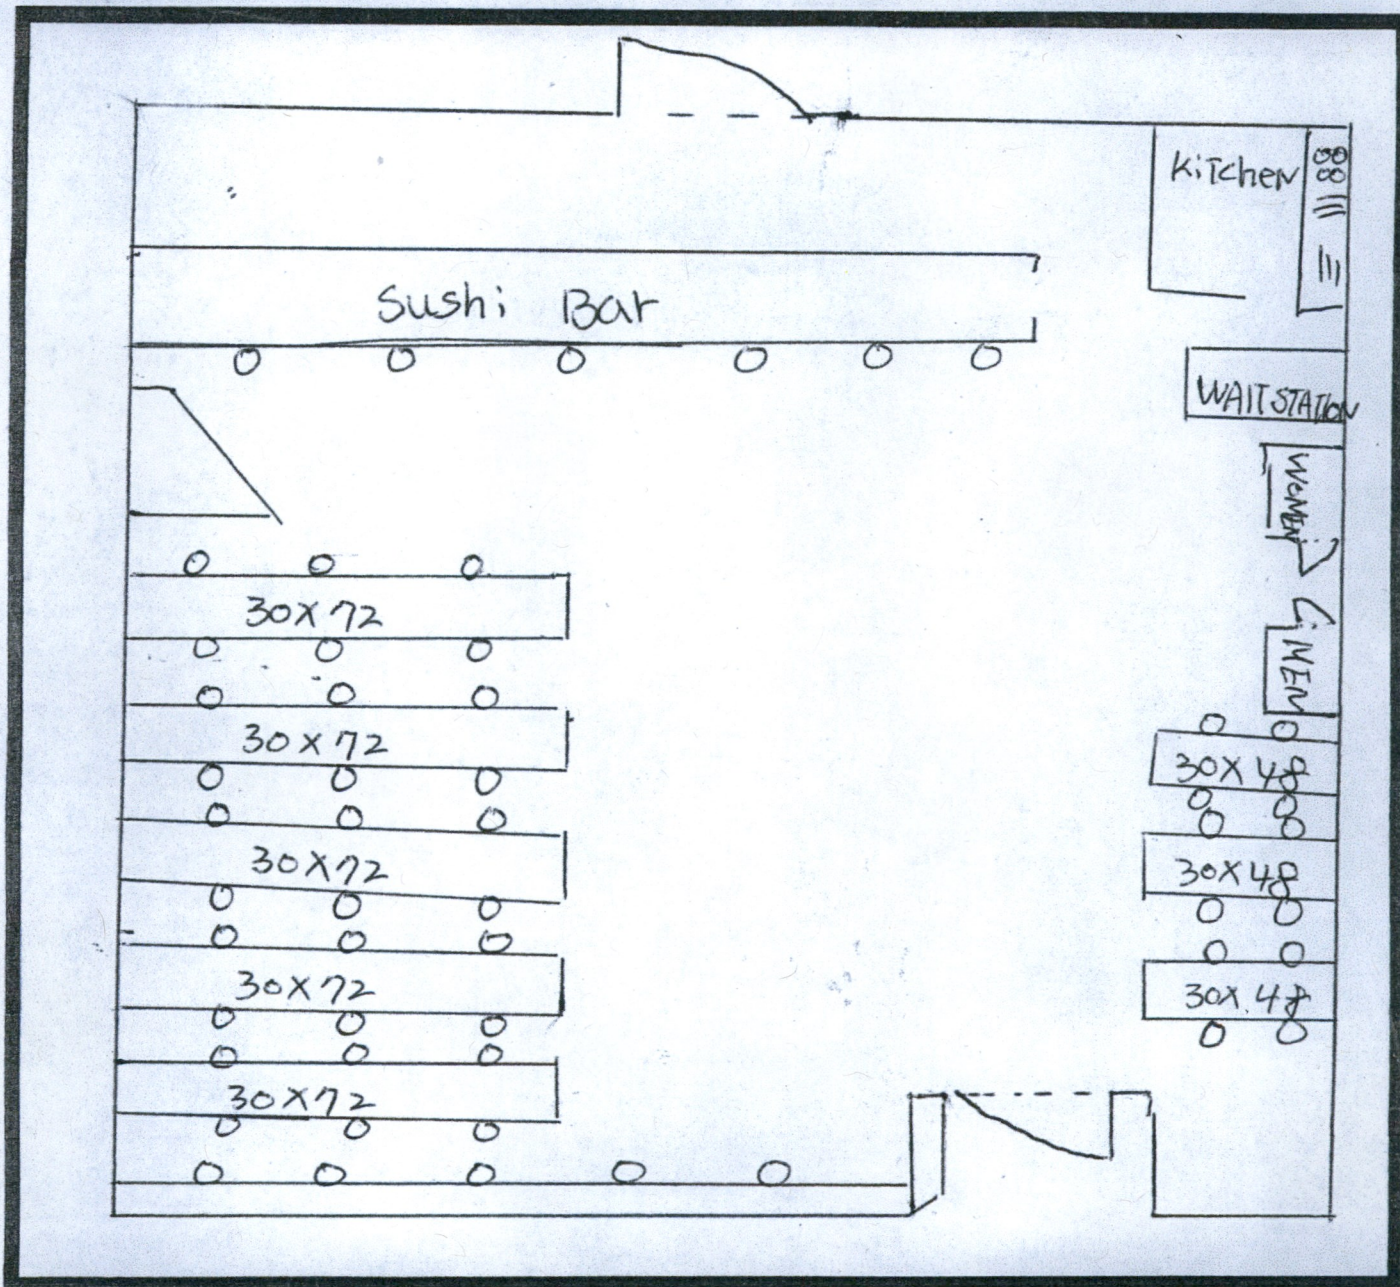 Kitchen
Sushi Bar
WAIT STATION
WOMEN
MEN
30X72
30X72
30X48
30X72
30X48
30X72
30X.48
30X72